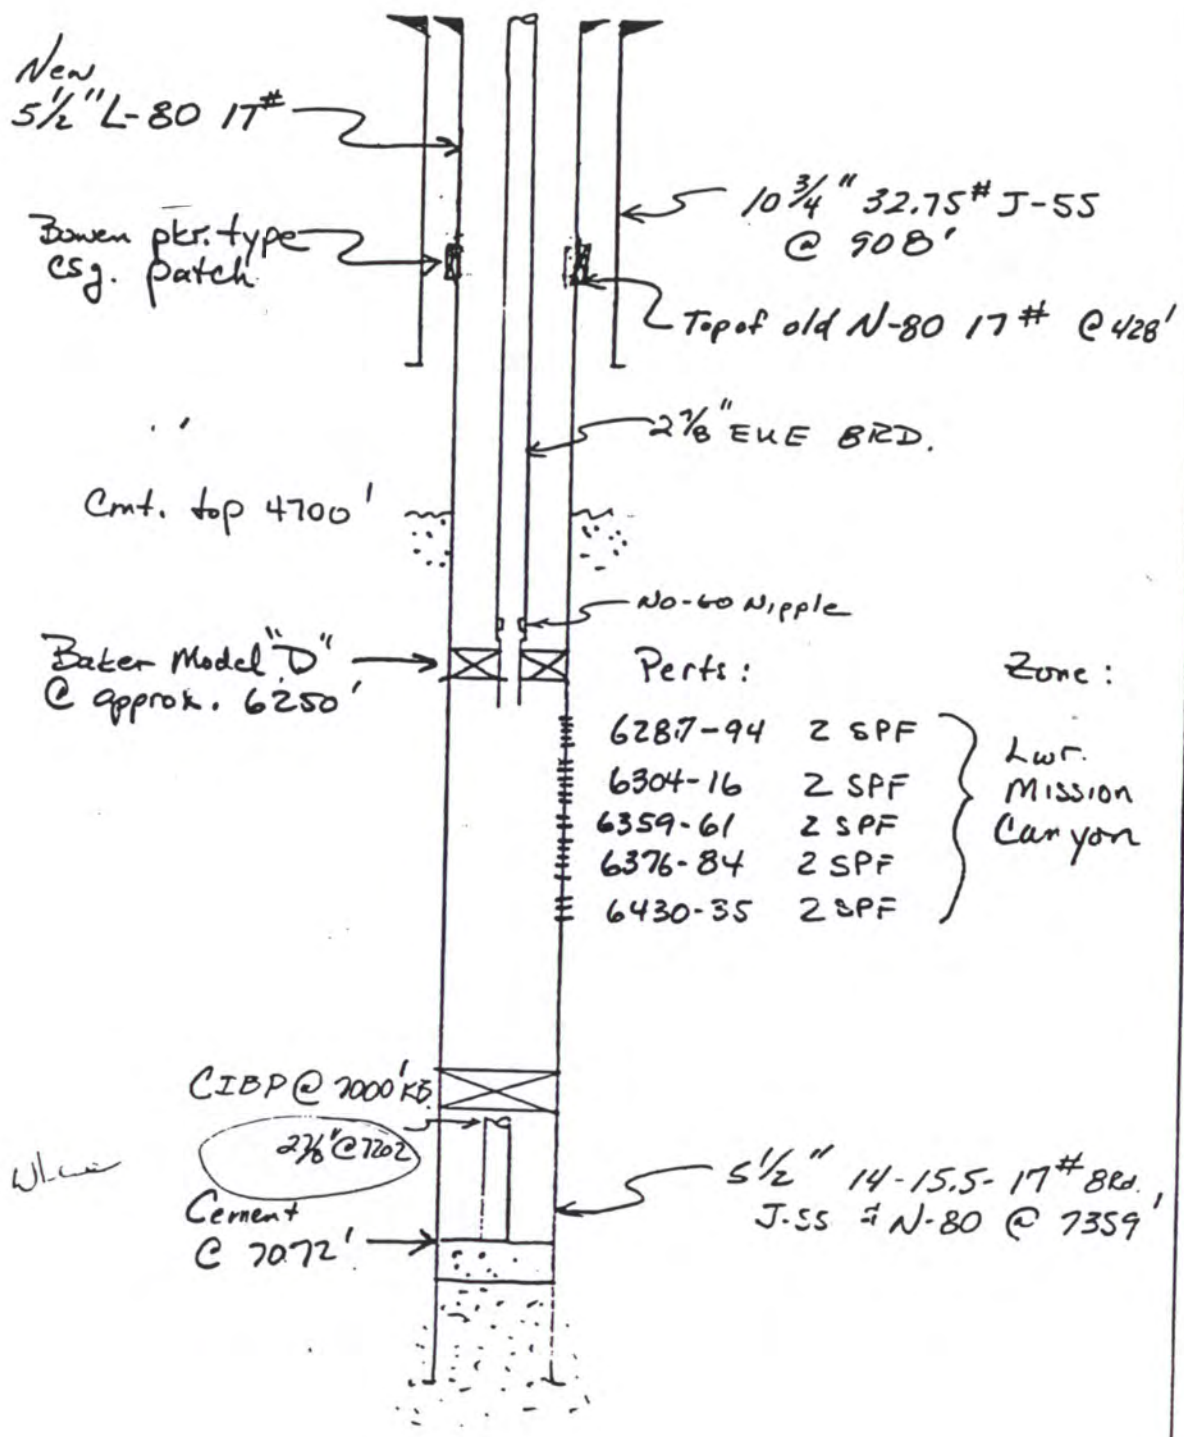 New
5 1/2" L-80 17#
Bowen pkr. type
csg. patch
10 3/4" 32.75# J-55
@ 908'
Top of old N-80 17# @ 428'
2 7/8" EUE 8RD.
Cmt. top 4700'
No-Go Nipple
Baker Model "D"
@ approx. 6250'
Perfs: Zone:
6287-94 2 SPF
6304-16 2 SPF
6359-61 2 SPF
6376-84 2 SPF
6430-35 2 SPF
Lwr.
Mission
Canyon
CIBP @ 7000' KB
2 7/8" @ 7202
Cement
@ 7072'
5 1/2" 14-15.5-17# 8Rd.
J-55 & N-80 @ 7359'